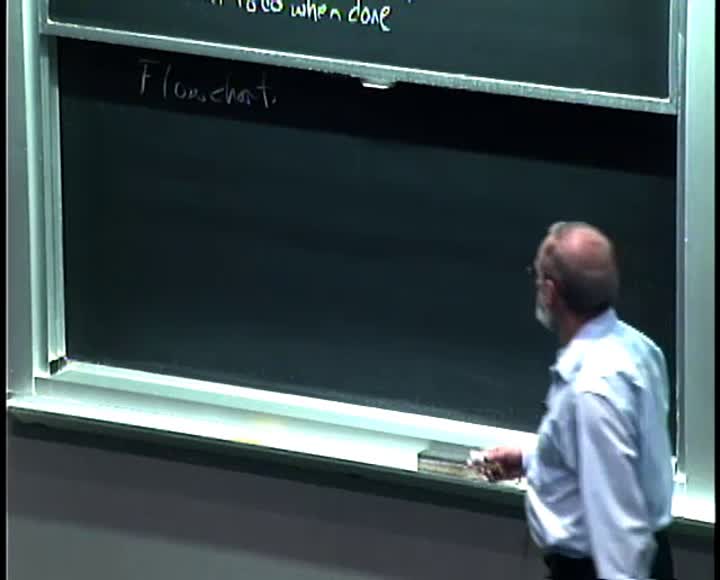 when done
Flowchart.